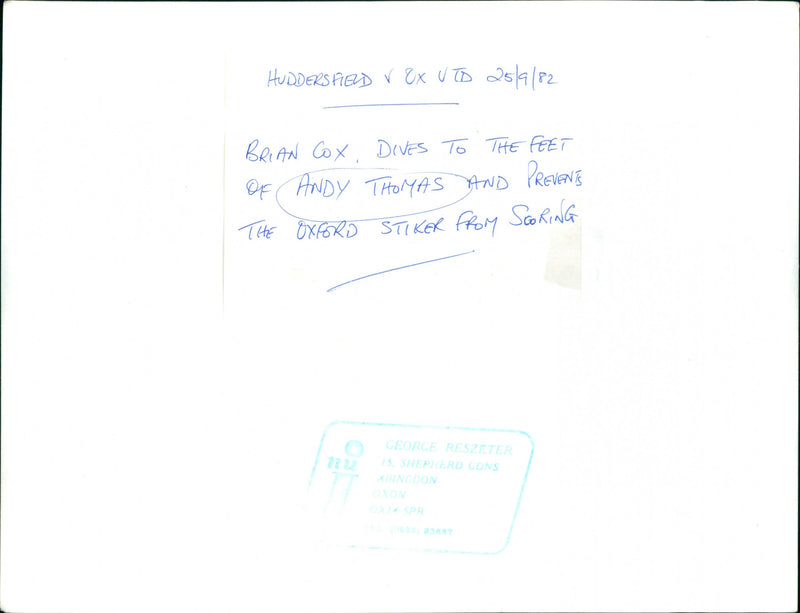 HUDDERSFIELD V OX UTD 25/9/82
BRIAN COX, DIVES TO THE FEET
OF ANDY THOMAS AND PREVENTS
THE OXFORD STIKER FROM SCORING
GEORGE RESZETER
SHEPHERD GDNS
ABINGDON
OXON
OX14 5PR